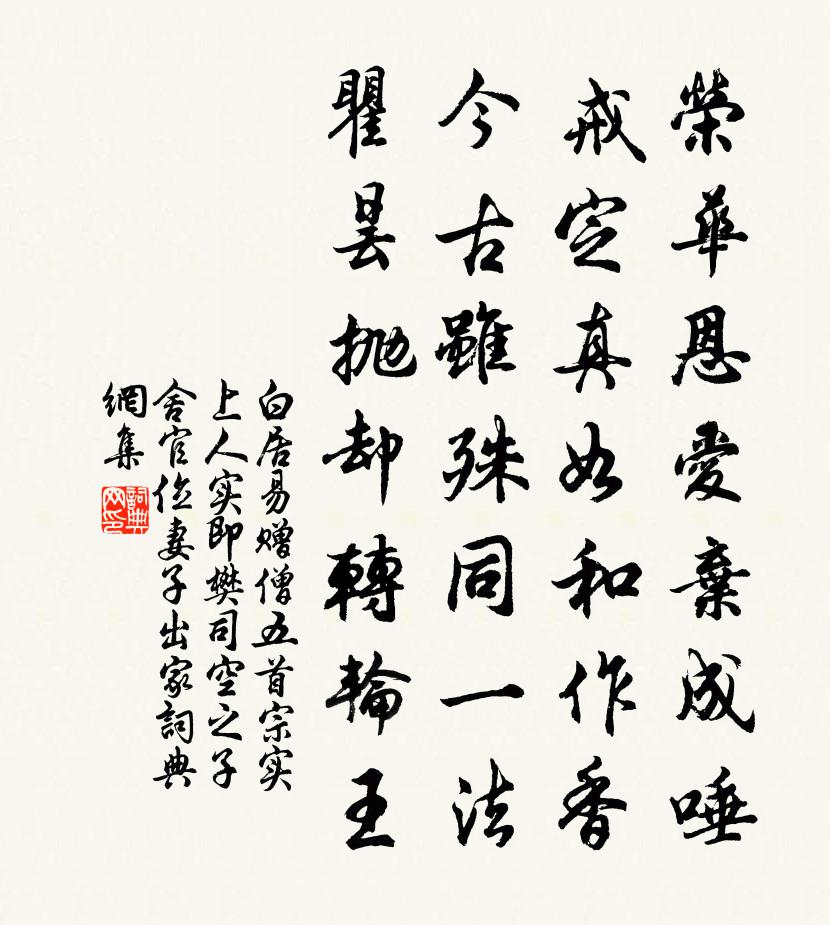 榮華恩愛棄成唾
戒定真如和作香
今古雖殊同一法
瞿曇拋却轉輪王
白居易赠僧五首宗实
上人实即樊司空之子
舍官位妻子出家詞典
網集
詞典網印